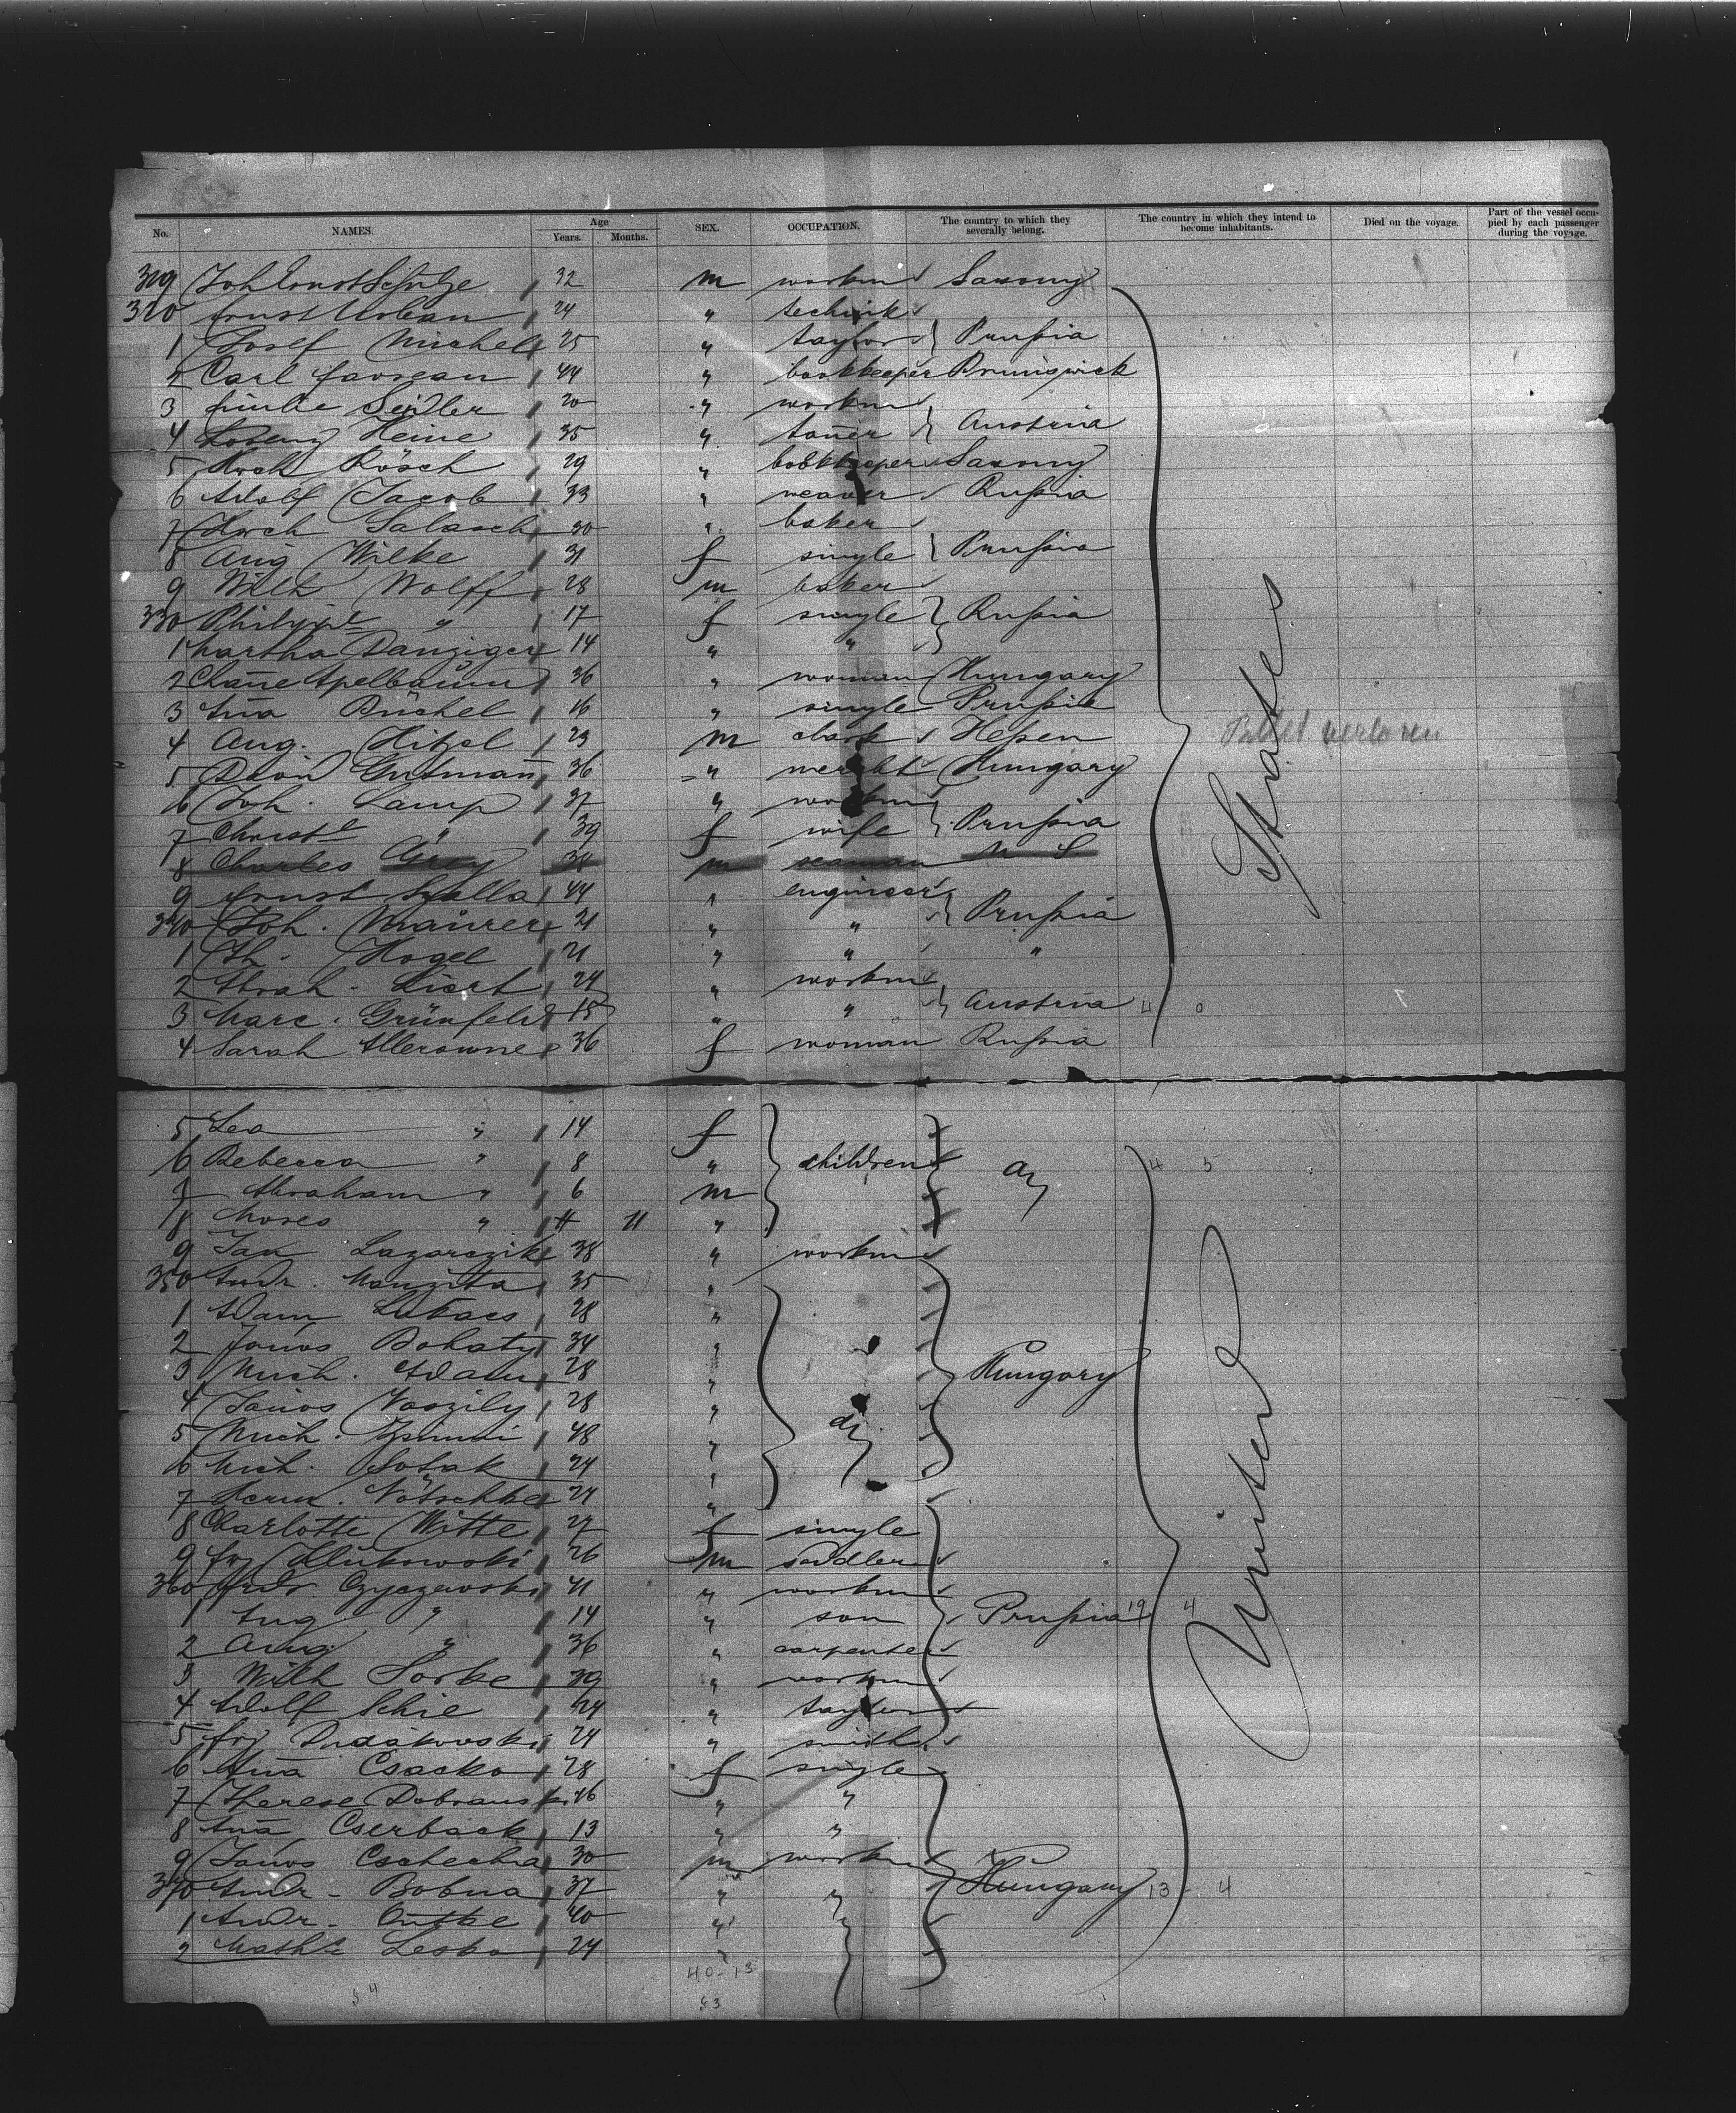 No. NAMES. Age Years. Months. SEX. OCCUPATION. The country to which they severally belong. The country in which they intend to become inhabitants. Died on the voyage. Part of the vessel occupied by each passenger during the voyage.
319 Joh Ernst Schulze 32 m workm Saxony
320 Ernst Urban 24 " technik
1 Josef Michel 25 " taylor } Prußia
2 Carl 44 " bookkeeper Prunswick
3 Seidler 20 " workm
4 Lorenz Heine 35 " taner } Austria
5 Hrch Rösch 29 " bookkeeper Saxony
6 Adolf Jacob 33 " weaver Rußia
7 Hrch Salasch 30 " baker
8 Aug Wilke 31 f single } Prußia
9 Wilh Wolff 28 m baker
330 Philippe " 17 f single } Rußia
1 Martha Danziger 14 " "
2 Chane Apelbaum 36 " woman Hungary
3 Ana Büchel 16 " single Prußia
4 Aug. Hitzel 23 m clark Heßen
5 Gutman 36 " Hungary
6 Joh. Lamp 37 " workm
7 Christe " 39 f wife } Prußia
8 Charles Grey 38 m seaman U S.
9 Ernst 44 " engineer
340 Joh. Maurer 21 " " } Prußia
1 Th. Hogel 21 " " "
2 24 " workm
3 Marc. Grünfeld 15 " " } Austria 4 0
4 Sarah Allerowne 36 f woman Rußia
5 Lea " 14 f
6 Rebecca " 8 " children dy 4 5
7 Abraham " 6 m
8 Moses " 11 "
9 Jan Lazarczik 38 " workm
350 Andr. 35 "
1 Adam Lukacs 28 "
2 Janos Bohaty 34 "
3 Mich. Adam 28 " Hungary
4 Janos Vaszily 28 "
5 Mich. 48 " dy
6 Mich. Sotak 24 "
7 Herm. Nötschke 24 "
8 Charlotte Witte 27 f single
9 frz 26 m sadler
360 41 " workm
1 Aug " 14 " son Prußia 19 4
2 Aug " 36 " carpenter
3 Wilh Sorke 39 " workm
4 Adolf Schie 24 " taylor
5 frz 24 " smith
6 Ana Csacko 28 f single
7 Therese Dobranski 16 " "
8 Ana Cserback 13 " "
9 Janos 30 m workm
370 Andr. Bobna 37 " " Hungary 13 4
1 Andr. 40 "
2 Lesko 24 "
40-13
54
53
United States
verloren